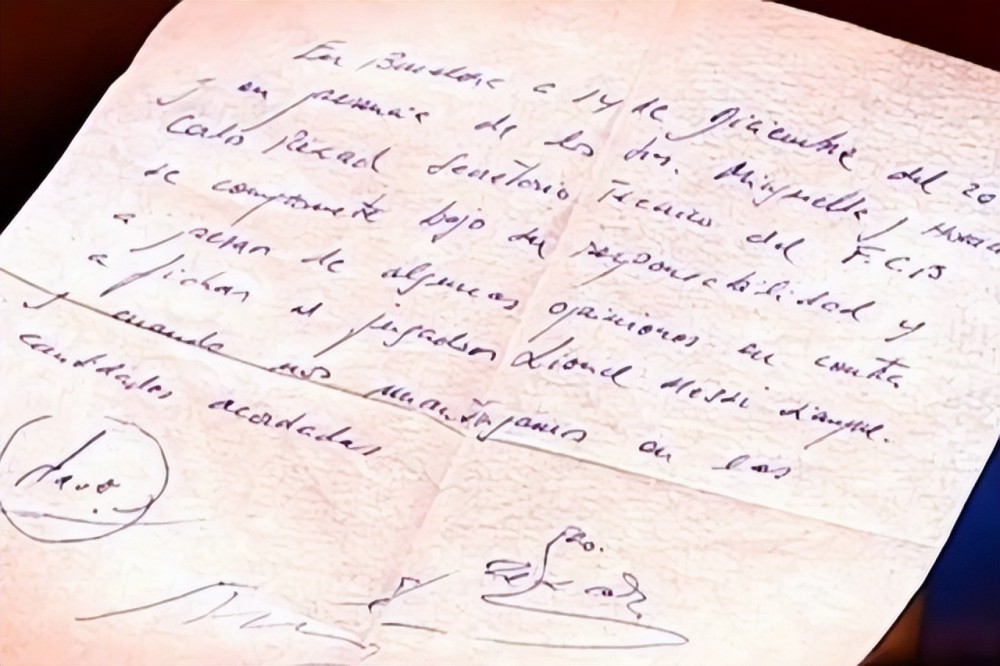 En Barcelona a 14 de Diciembre del 20
y en presencia de los Srs. Minguella y Horaci
Carlos Rexach Secretario Técnico del F.C.B
se compromete bajo su responsabilidad y
a pesar de algunas opiniones en contra
a fichar al jugador Lionel Messi siempre
y cuando nos mantengamos en las
cantidades acordadas